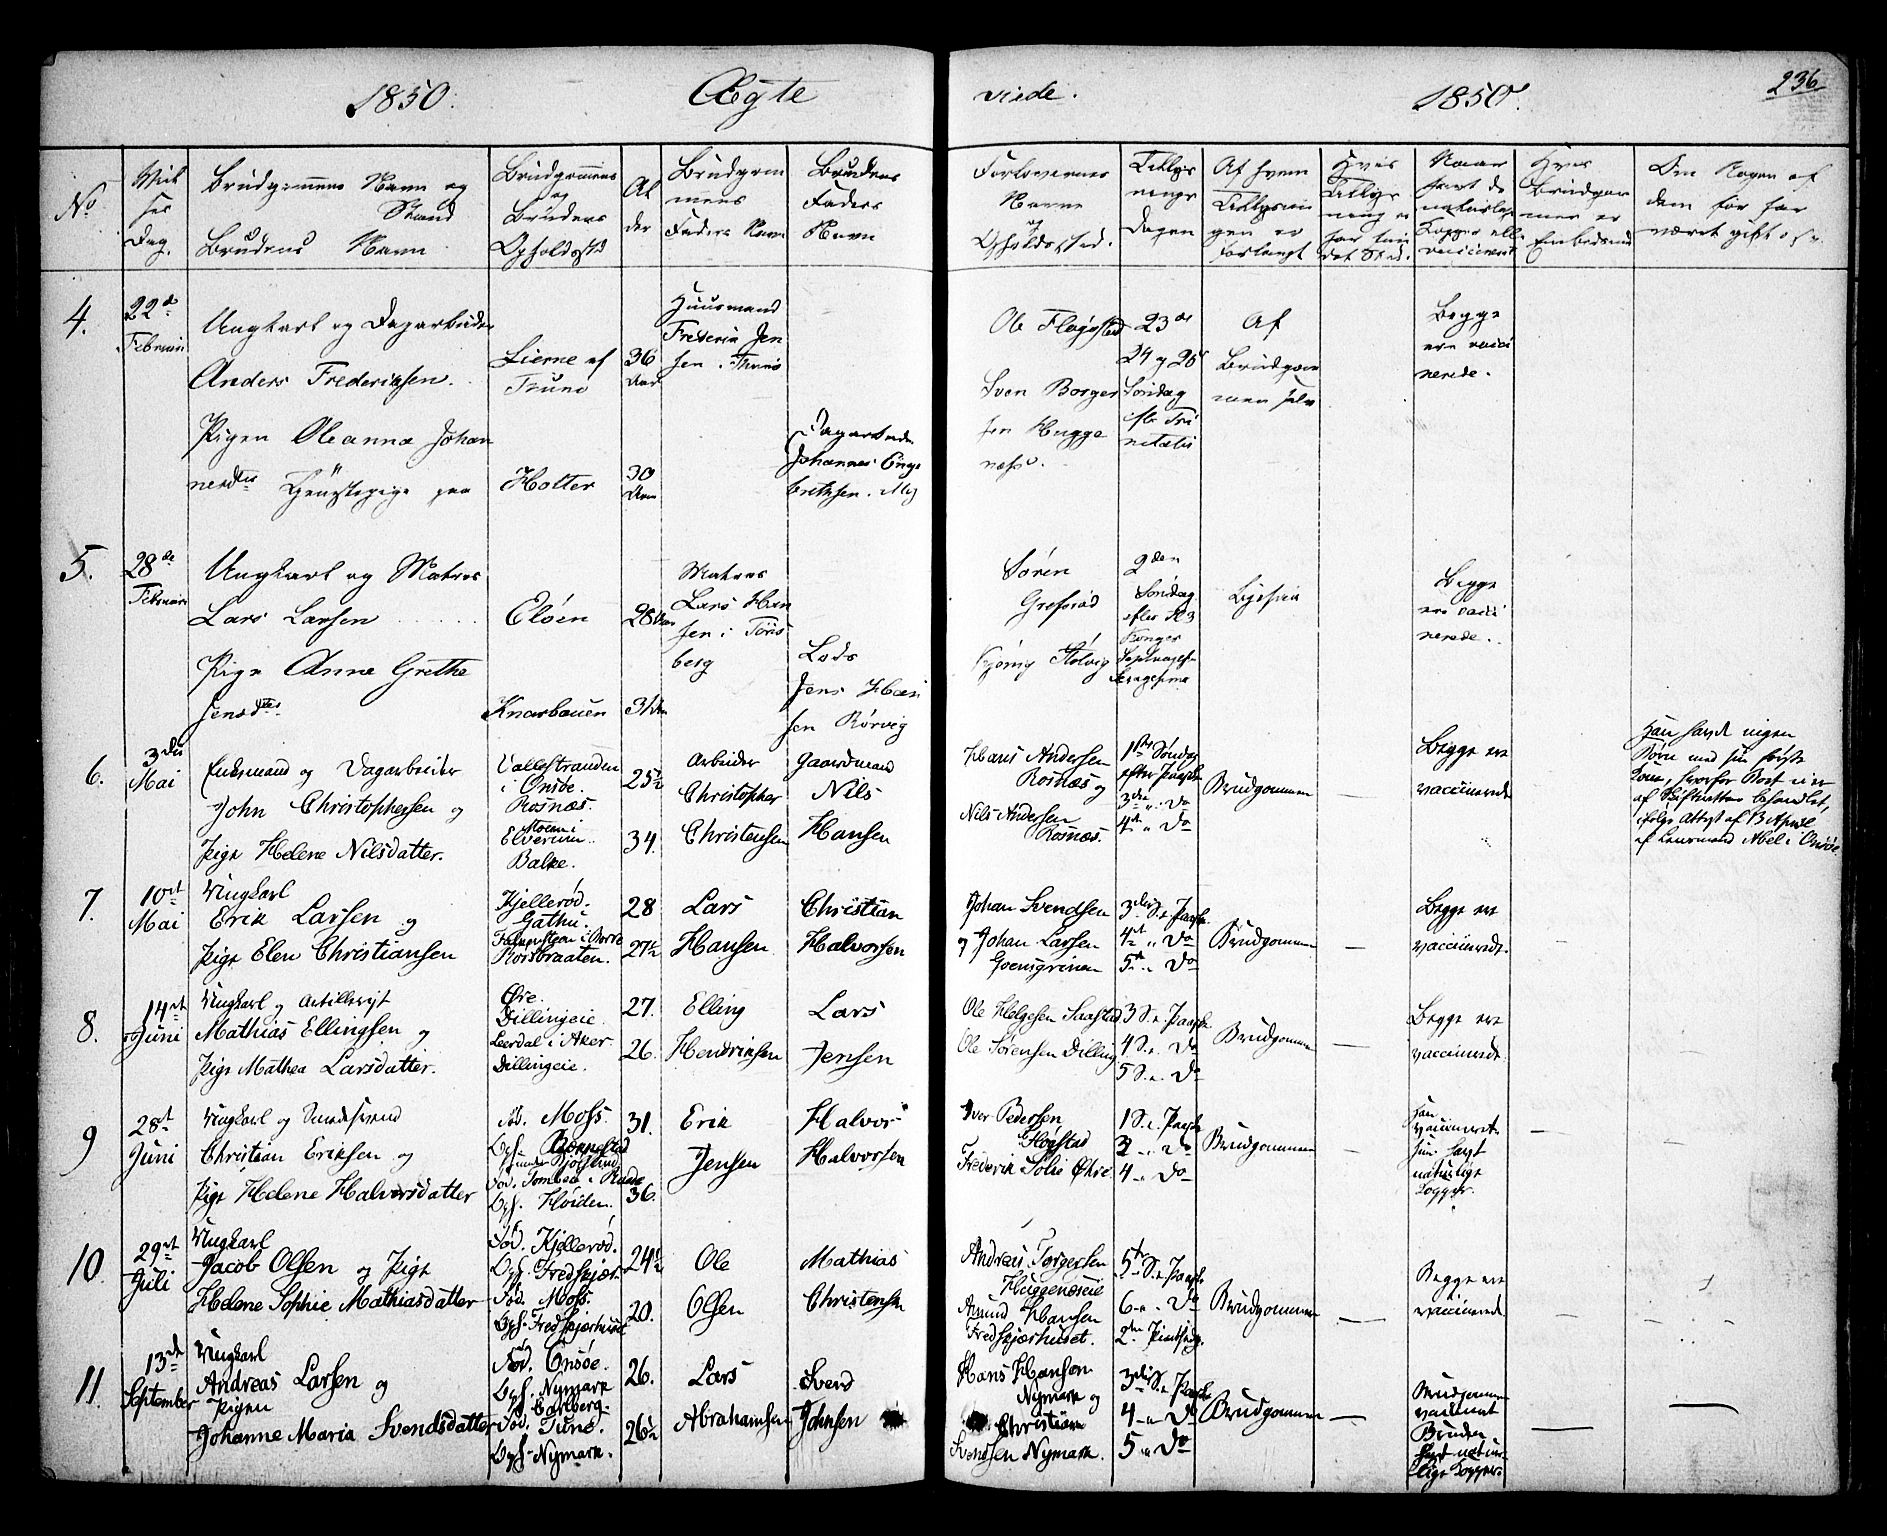 1850. Ægte
viede. 1850. 236
No
Viel
ses
Dag.
Brudgommens Navn og
Stand
Brudens Navn
Brudgommens
og
Brudens
Opholdssted
Al
der
Brudgom
mens
Faders Navn
Brudens
Faders
Navn
Forlovernes
Navne
og
Opholdssted.
Tillys
nings
Dagen
Af hvem
Tillysnin
gen er
forlangt
Hvis
Tillys
ning er
Naar
havt de
naturlige
Kopper elle
vaccineret
Hvis
Brudgom
men er
Embedsmd
Om Nogen af
dem før har
været gift
4.
22de
Februar
Ungkarl og Dagarbeider
Anders Frederiksen.
Pigen Oleanna Johan
nesdtr Tjenestepige paa
Lierne af
Tune
Holter
36
Aar
30
Aar
Huusmand
Frederik Jen
sen i Thune
Dagarbeider
Johannes Enge
bretsen
Ole Flogstad
Sven Borger
sen Hugge
næss.
23de
24 og 25de
Søndag
efter Tri
nitatis
Af
Brudgom
men selv
Begge
ere vacci
nerede.
5.
28de
Februar
Ungkarl og Matros
Lars Larsen
Pige Anne Grethe
Jensdtr
Eløen
Knarbouen
28 Aar
31 Aar
Matros
Lars Han
sen i Tøns
berg
Lods
Jens Han
sen Rørvig
Søren
Grefsrød
2den
Søndag
efter H 3
Konger
Begge
ere vacci
nerede.
6.
3die
Mai
Enkemand og Dagarbeider
John Christophersen og
Pige Helene Nilsdatter.
Vallestranden
i Onsøe.
Rosnæs.
Elverum.
Balke.
25½
34.
Arbeider
Christopher
Christensen
Gaardmand
Nils
Hansen
Hans Andersen
Rosnæs og
Nils Andersen
Rosnæs.
1ste Søndag
efter Paaske
3die " Do
4de " Do
Brudgommen
Begge ere
vaccinerede
Han havde ingen
Børn med sin første
Kone, hvorfor Boet ei er
af Skifteretten behandlet,
ifølge Attest af 13 April
af Lensmand Abel i Onsøe.
7.
10de
Mai
Ungkarl
Erik Larsen og
Pige Elen Christiansen
Kjellerød.
Gathu.
Rosbraaten.
28
27½
Lars
Hansen
Christian
Halvorsen
Johan Svendsen
og Johan Larsen
Goensgrinen
3die S. e. Paaske
4de " Do
5te " Do
Brudgommen
Begge ere
vaccinerede.
8.
14de
Juni
Ungkarl og Artillerist
Mathias Ellingsen og
Pige Mathea Larsdatter.
Øre.
Dillingeie.
Leerdal i Aker.
Dillingeie.
27.
26.
Elling
Hendriksen
Lars
Jensen
Ole Helgesen Saastad
Ole Sørensen Dilling
3 S. e. Paaske
4 S. e. Do
5 S. e. Do
Brudgommen
Begge ere
vaccinerede.
9
28de
Juni
Ungkarl og
Christian Eriksen og
Pige Helene Halvorsdatter
Fød. Moss.
Oph.
Fød. Tombøe i Raade
Oph. Høiden.
31.
36.
Erik
Jensen
Halvor
Halvorsen
Iver Pedersen
Flogstad
Frederik Solie Øhre.
1 S. e. Paaske
2 " " Do
4 " Do
Brudgommen
Han
vaccineret.
hun havt
naturlige
Kopper.
10.
29de
Juli
Ungkarl
Jacob Olsen og Pige
Helene Sophie Mathiasdatter
Fød. Kjellerød.
Oph. Fredskjær
Fød. Moss.
Oph. Fredskjærhuset
24½
20.
Ole
Olsen
Mathias
Christensen
Andreas Torgersen
Huggenæseie
Amund Hansen
Fredskjærhuset.
5te S. e. Paaske
6 " " Do
2den Pintsedag.
Brudgommen
Begge ere
vaccinerede
11.
13de
September
Ungkarl
Andreas Larsen og
Pigen
Johanne Maria Svendsdatter
Fød. Onsøe.
Oph. Nymark
Carlberg.
Fød. Tune.
Oph. Nymark.
26.
26½
Lars
Abrahamsen
Svend
Johnsen
Hans Hansen
Nymark og
Christian
Svendsen Nymark.
3die S. e. Paaske
4 " " Do
5 " Do
Brudgommen
Brudgommen
vaccineret
Bruden
havt natur
lige Kopper.